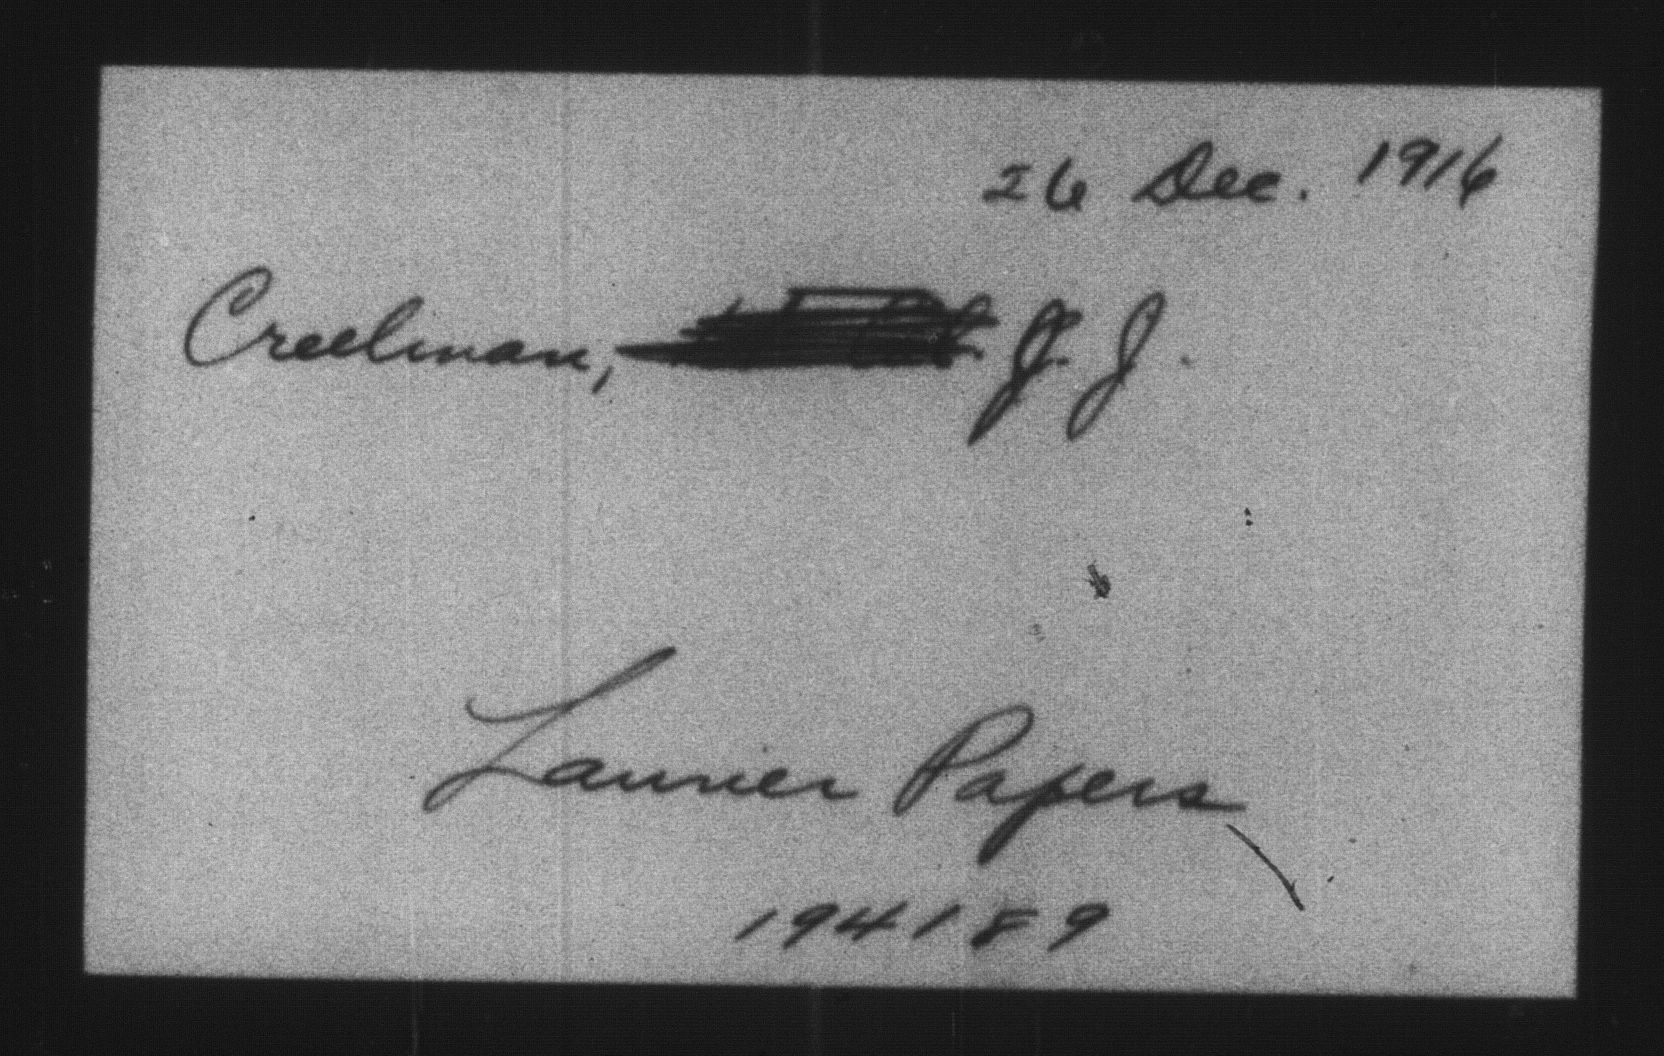 26 Dec. 1916
Creelman, J. J.
Laurier Papers
194189